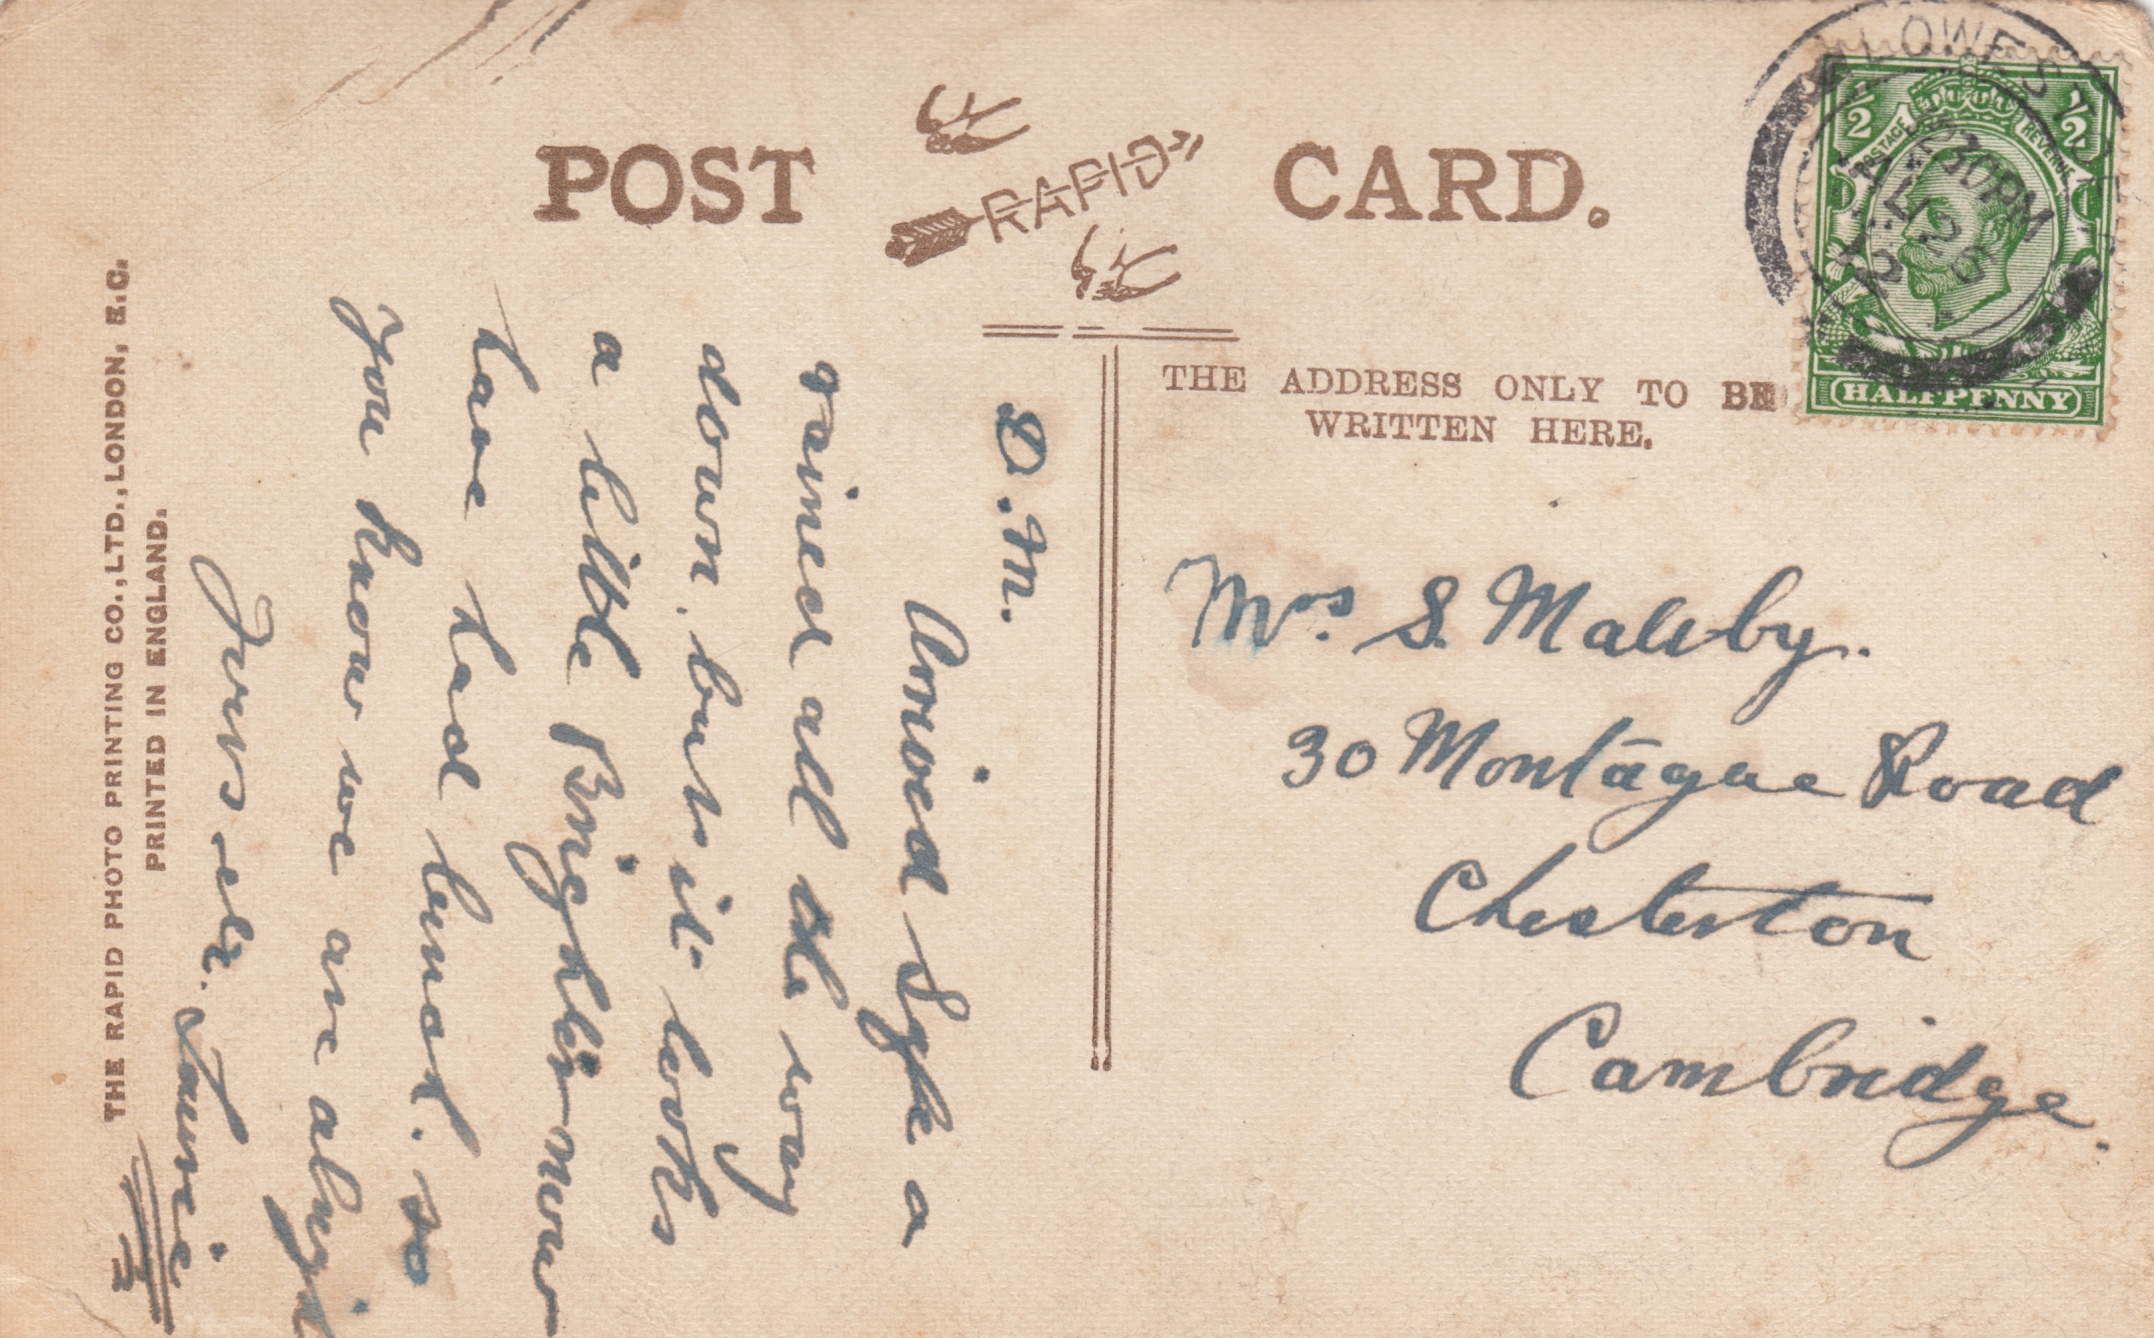 POST RAPID CARD.
THE ADDRESS ONLY TO BE
WRITTEN HERE.
½ ½
POSTAGE REVENUE
HALFPENNY
LOWESTOFT
30 PM
Mrs. S. Maltby.
30 Montague Road
Chesterton
Cambridge.
D.M.
Arrived Safe a
rained all the way
down. but it looks
a little Brighter now
have had lunch. so
you know we are alright
Yours etc.
Laurie
THE RAPID PHOTO PRINTING CO., LTD., LONDON, E.C.
PRINTED IN ENGLAND.